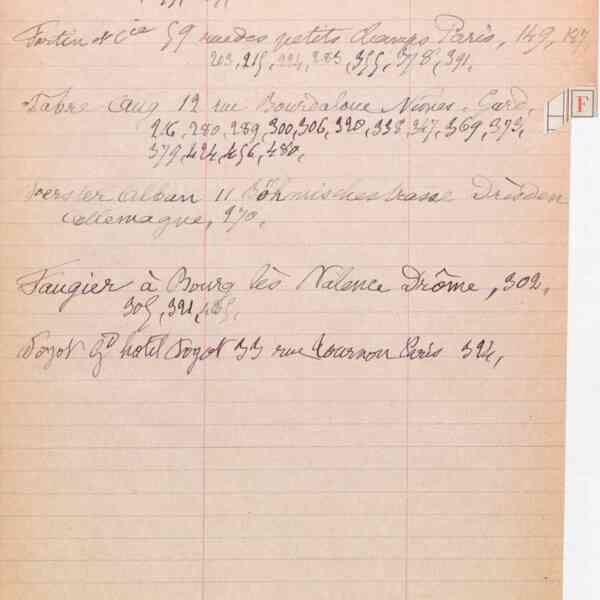 Fortin & Cie 59 rue des petits Champs Paris, 149, 147,
203, 215, 224, 283, 355, 378, 391.
F
Fabre Aug 12 rue Bourdaloue Nîmes. Gard.
280, 289, 300, 306, 320, 338, 347, 369, 373,
379, 424, 456, 480.
Foerster Alban 11 Böhmischestrasse Dresden
Allemagne, 270.
Faugier à Bourg lès Valence Drôme, 302.
305, 321, 465.
Foyot Gd hotel Foyot 33 rue Tournon Paris 324,